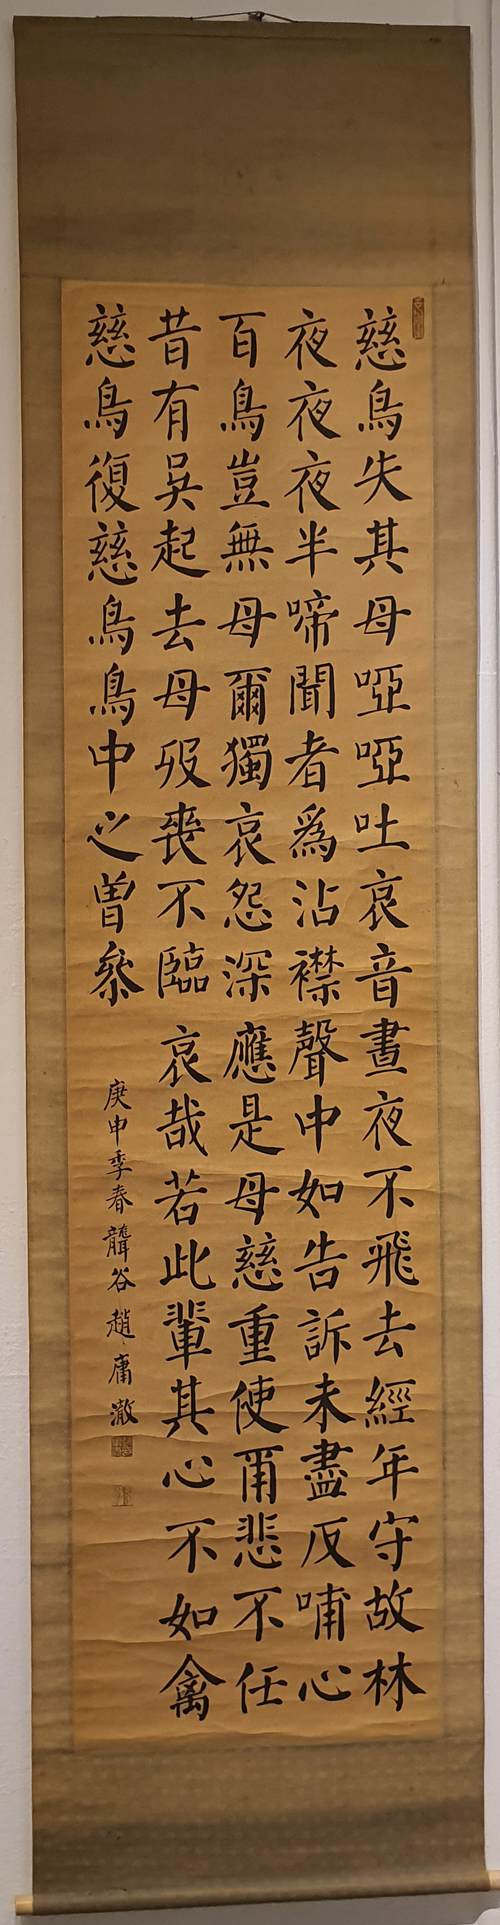 慈鳥失其母啞啞吐哀音晝夜不飛去經年守故林
夜夜夜半啼聞者爲沾襟聲中如告訴未盡反哺心
百鳥豈無母爾獨哀怨深應是母慈重使爾悲不任
昔有吳起去母歿喪不臨哀哉若此輩其心不如禽
慈鳥復慈鳥鳥中之曾參
庚申季春聾谷趙庸澈